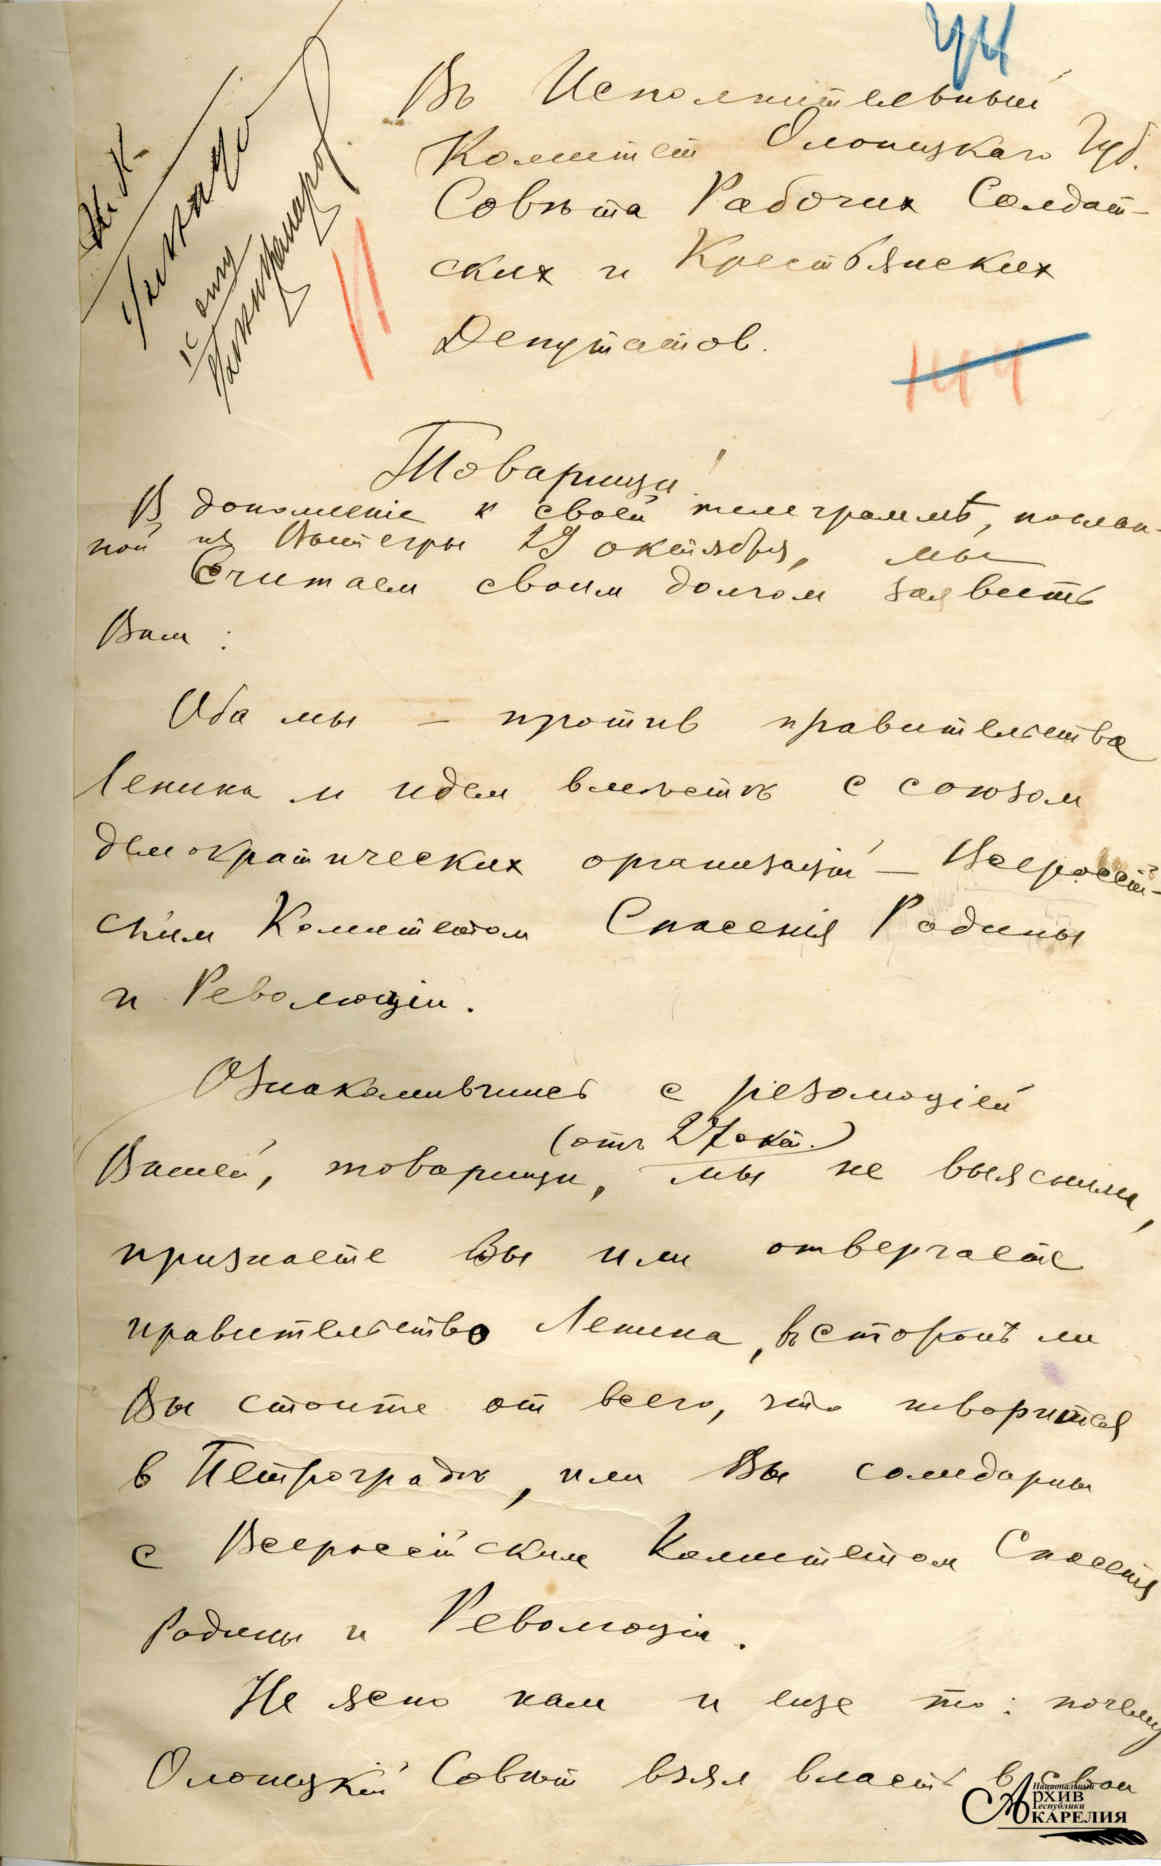 Въ Исполнительный
Комитет Олонецкаго Губ.
Совѣта Рабочих Солдат-
ских и Крестьянских
Депутатов.
144
Товарищи!
В дополненіе к своей телеграммѣ, послан-
ной из Вытегры 29 октября, мы
Считаем своим долгом заявить
Вам:
Оба мы – против правительства
Ленина и идем вмѣстѣ с союзом
демократических организацій – Всероссій-
ским Комитетом Спасенія Родины
и Революціи.
Ознакомившись с резолюціей
(отъ 27 окт.)
Вашей, товарищи, мы не выяснили,
признаете Вы или отвергаете
правительство Ленина, в сторонѣ ли
Вы стоите от всего, что творится
в Петроградѣ, или Вы солидарны
с Всероссійским Комитетом Спасенія
Родины и Революціи.
Не ясно нам и еще то: почему
Олонецкій Совѣт взял власть в свои
Национальный
Архив
Республики
КАРЕЛИЯ